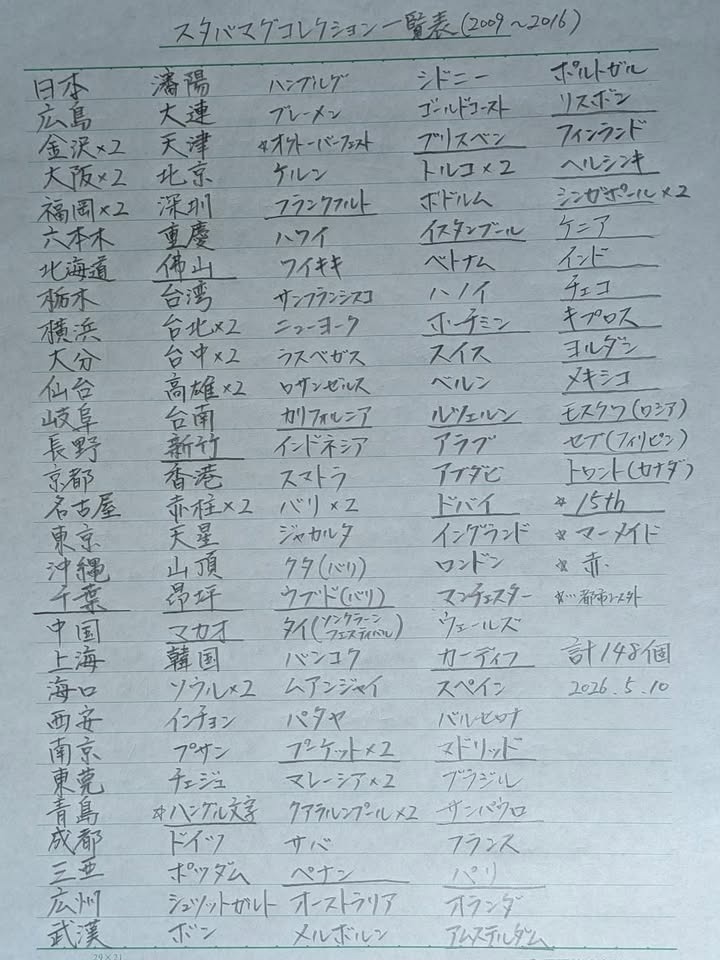 スタバマグコレクション一覧表(2009～2016)
日本
広島
金沢×2
大阪×2
福岡×2
六本木
北海道
栃木
横浜
大分
仙台
岐阜
長野
京都
名古屋
東京
沖縄
千葉
中国
上海
海口
西安
南京
東莞
青島
成都
三亜
広州
武漢
瀋陽
大連
天津
北京
深圳
重慶
佛山
台湾
台北×2
台中×2
高雄×2
台南
新竹
香港
赤柱×2
天星
山頂
昂坪
マカオ
韓国
ソウル×2
インチョン
プサン
チェジュ
☆ハングル文字
ドイツ
ポツダム
シュツットガルト
ボン
ハンブルグ
ブレーメン
☆オクトーバーフェスト
ケルン
フランクフルト
ハワイ
ワイキキ
サンフランシスコ
ニューヨーク
ラスベガス
ロサンゼルス
カリフォルニア
インドネシア
スマトラ
バリ×2
ジャカルタ
クタ(バリ)
ウブド(バリ)
タイ(ソンクラーンフェスティバル)
バンコク
ムアンジャイ
パタヤ
プーケット×2
マレーシア×2
クアラルンプール×2
サバ
ペナン
オーストラリア
メルボルン
シドニー
ゴールドコースト
ブリスベン
トルコ×2
ボドルム
イスタンブール
ベトナム
ハノイ
ホーチミン
スイス
ベルン
ルツェルン
アラブ
アブダビ
ドバイ
イングランド
ロンドン
マンチェスター
ウェールズ
カーディフ
スペイン
バルセロナ
マドリッド
ブラジル
サンパウロ
フランス
パリ
オランダ
アムステルダム
ポルトガル
リスボン
フィンランド
ヘルシンキ
シンガポール×2
ケニア
インド
チェコ
キプロス
ヨルダン
メキシコ
モスクワ(ロシア)
セブ(フィリピン)
トロント(カナダ)
☆15th
☆マーメイド
☆赤
☆…都市コースト外
計148個
2026.5.10